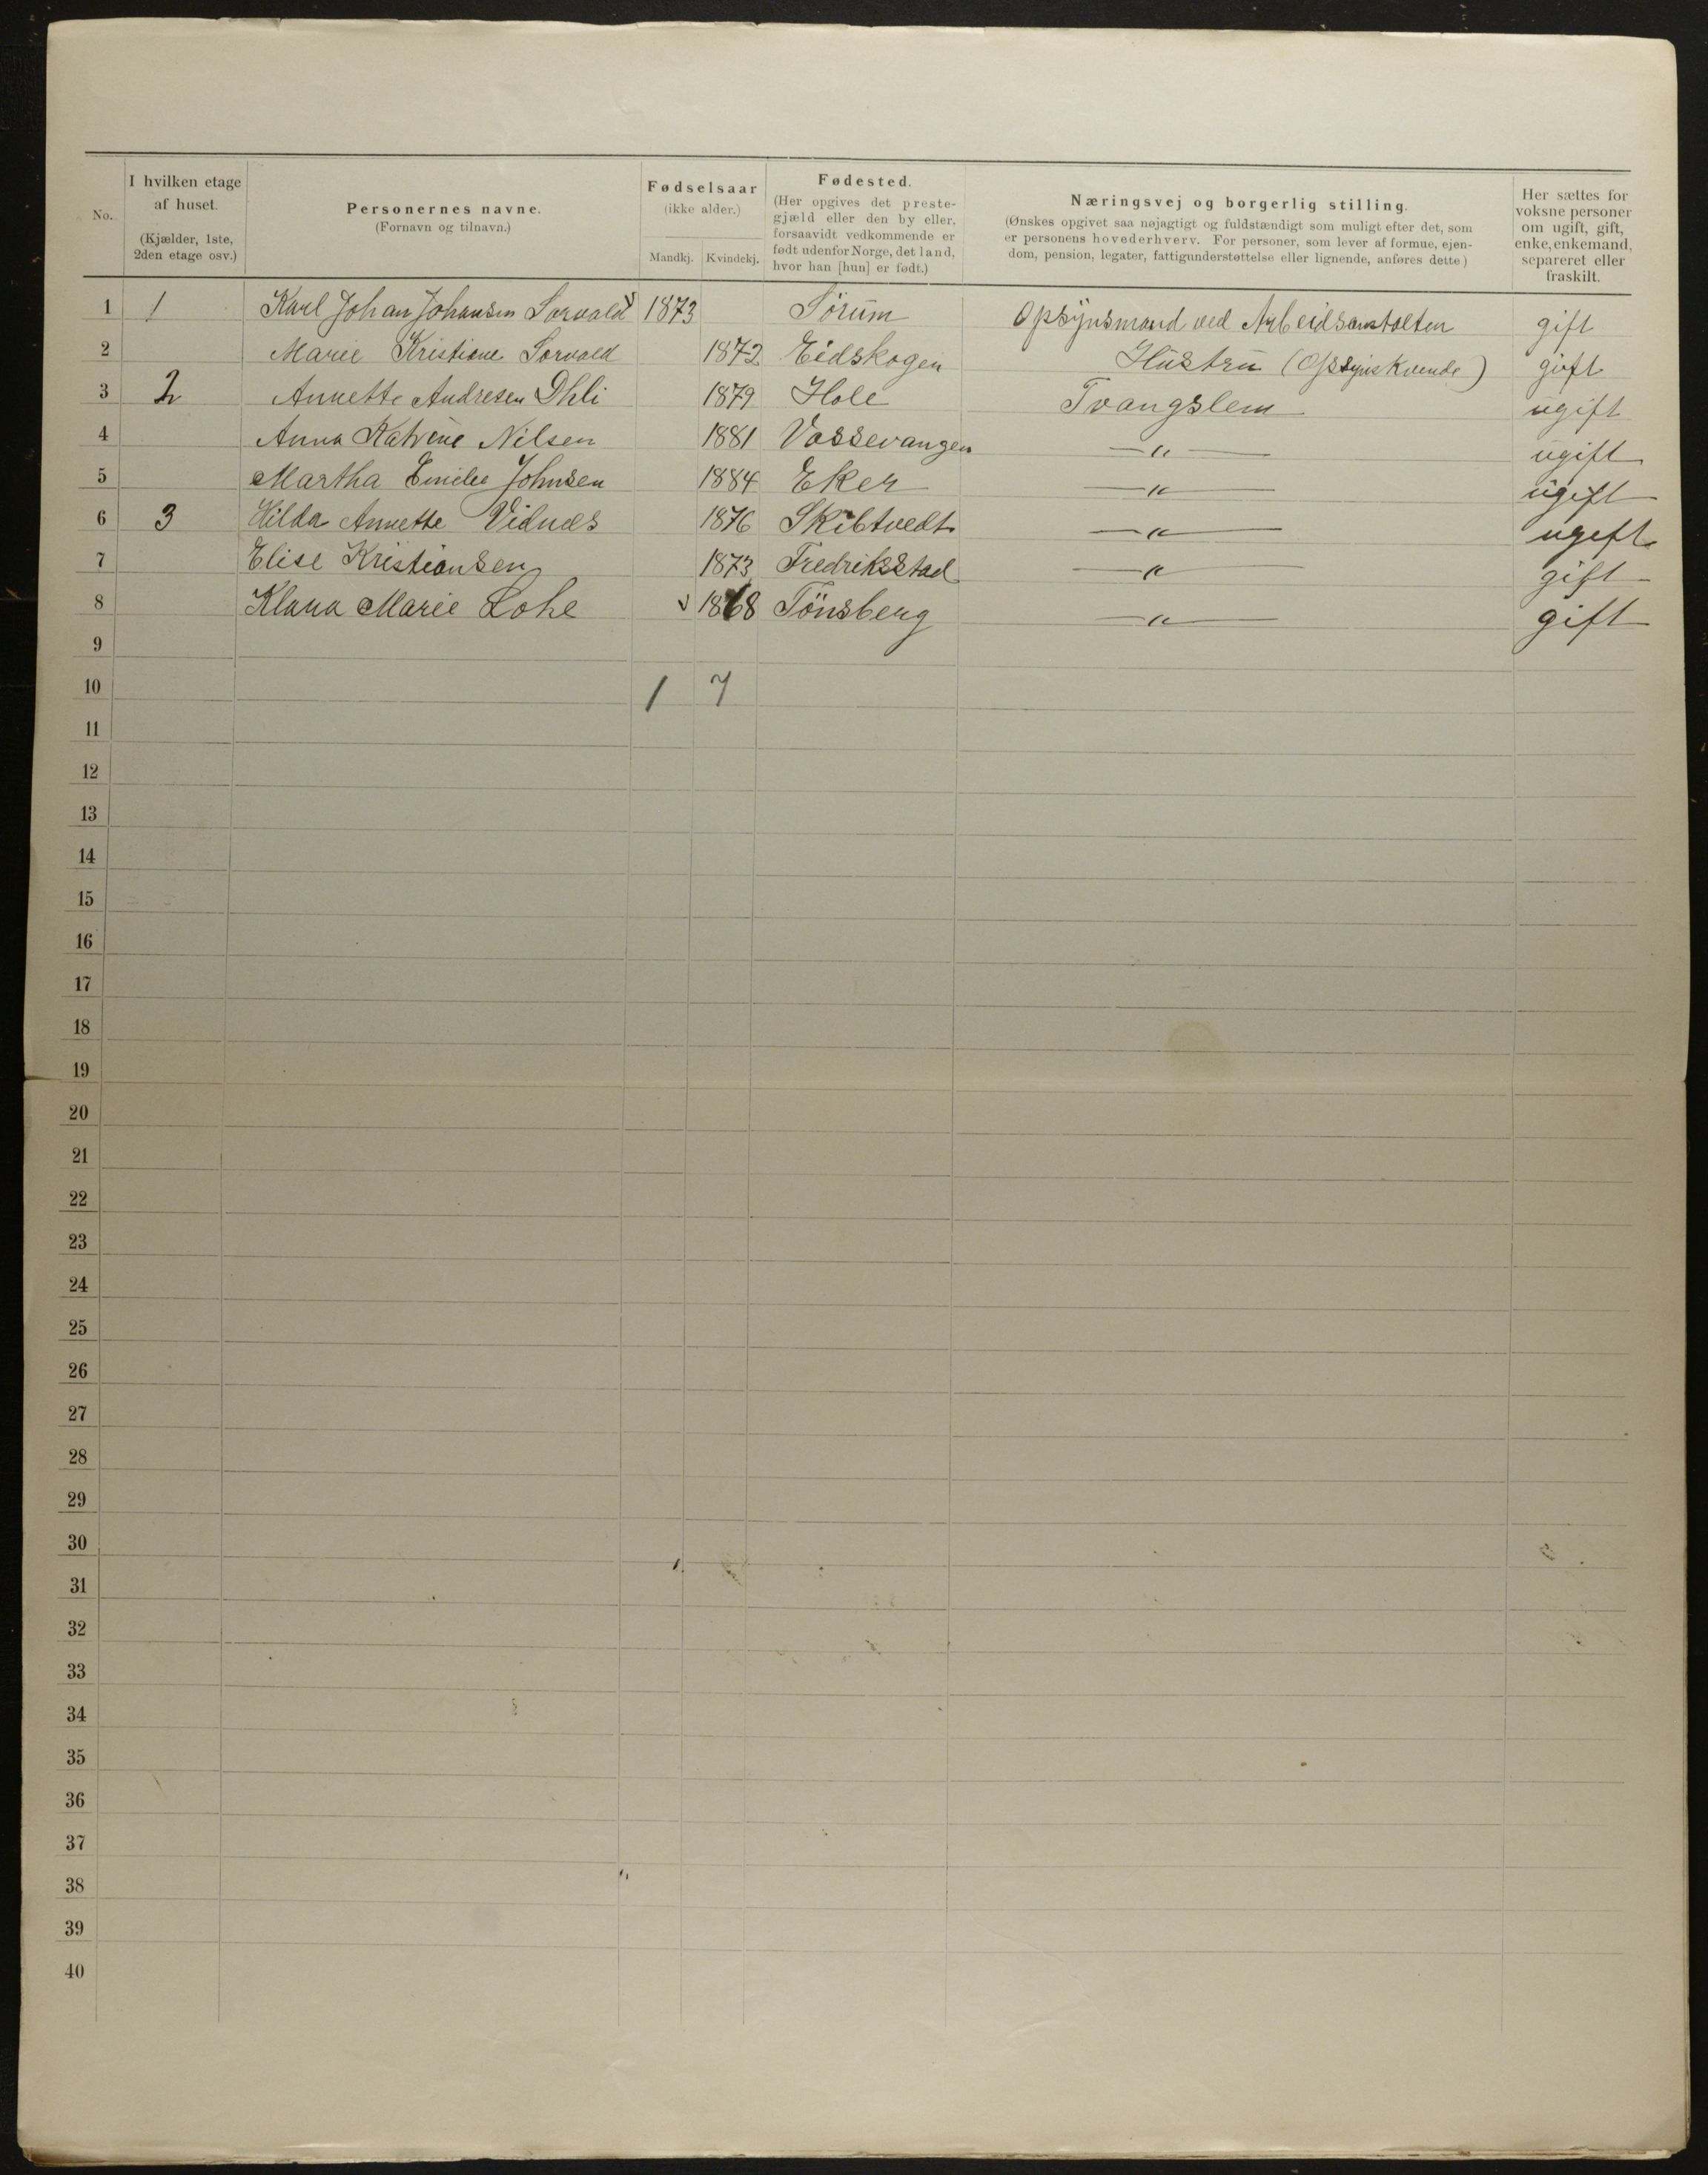 No.
I hvilken etage af huset.
(Kjælder, 1ste, 2den etage osv.)
Personernes navne.
(Fornavn og tilnavn.)
Fødselsaar
(ikke alder.)
Mandkj. Kvindekj.
Fødested.
(Her opgives det prestegjæld eller den by eller, forsaavidt vedkommende er født udenfor Norge, det land, hvor han [hun] er født.)
Næringsvej og borgerlig stilling.
(Ønskes opgivet saa nøjagtigt og fuldstændigt som muligt efter det, som er personens hovederhverv. For personer, som lever af formue, ejendom, pension, legater, fattigunderstøttelse eller lignende, anføres dette)
Her sættes for voksne personer om ugift, gift, enke, enkemand, separeret eller fraskilt.
1 1 Karl Johan Johansen Sorvald 1873 Sörum Opsynsmand ved Arbeidsanstalten gift
2 Marie Kristiane Sorvald 1872 Eidskogen Hustru (Opsynskvende) gift
3 2 Annette Andresen Dhli 1879 Hole Tvangslem ugift
4 Anna Katrine Nilsen 1881 Vossevangen —"— ugift
5 Martha Emilie Johnsen 1884 Eker —"— ugift
6 3 Hilda Annette Vidnes 1876 Skibtvedt —"— ugift
7 Elise Kristiansen 1873 Fredriksstad —"— gift
8 Klara Marie Lohe 1868 Tönsberg —"— gift
9
10 1 7
11
12
13
14
15
16
17
18
19
20
21
22
23
24
25
26
27
28
29
30
31
32
33
34
35
36
37
38
39
40